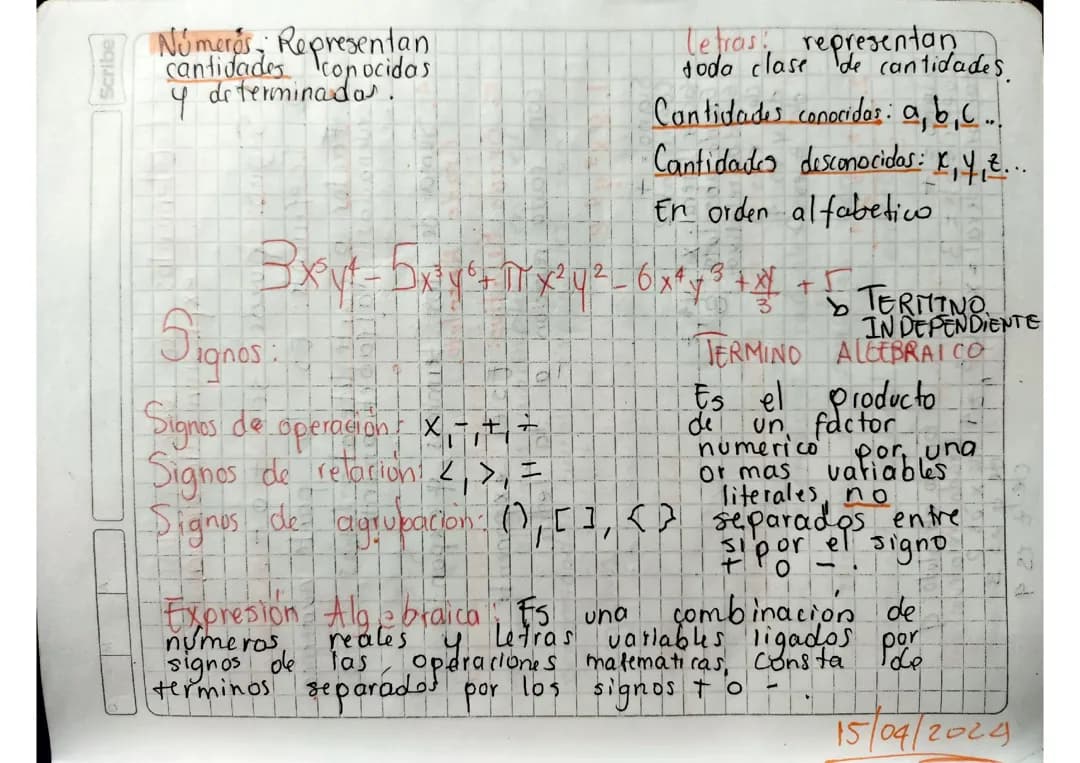 Scribe
Números: Representan
cantidades conocidas
y determinadas.
Letras: representan
toda clase de cantidades.
Cantidades conocidas: a, b, c ...
Cantidades desconocidas: x, y, z...
En orden alfabetico
3x⁵y⁴ - 5x³y⁶ + π x²y² - 6x⁴y³ + xy/3 + 5
TERMINO
INDEPENDIENTE
Signos:
Signos de operación: x, -, +, ÷
Signos de relación: <, >, =
Signos de agrupación: (), [ ], { }
TERMINO ALGEBRAICO
Es el producto
de un factor
numerico por una
or mas variables
literales, no
separados entre
si por el signo
+ o - .
Expresión Algebraica: Es una combinación de
números reales y Letras variables ligados por
signos de las operaciones matemáticas, Consta de
terminos separados por los signos + o - .
15/04/2024